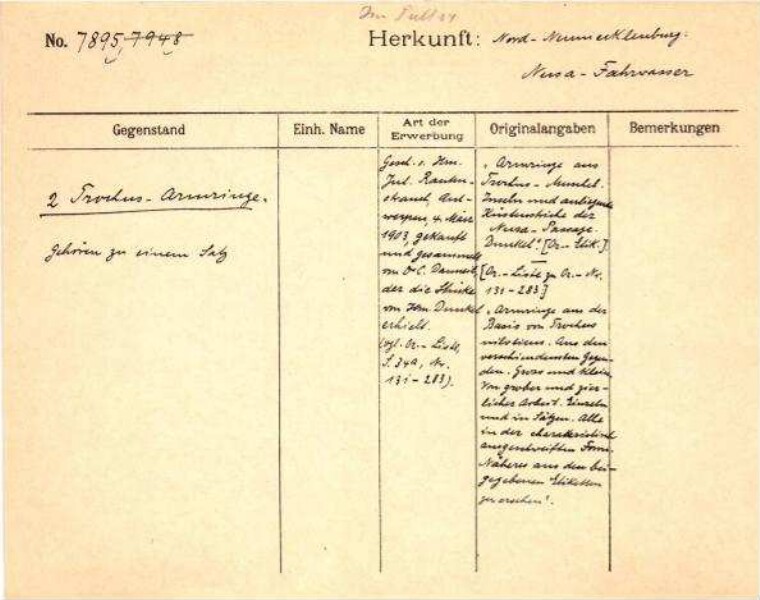 Im Pult 21
No. 7895, 7948
Herkunft: Nord-Neumecklenburg.
Nusa-Fahrwasser
Gegenstand
Einh. Name
Art der
Erwerbung
Originalangaben
Bemerkungen
2 Trochus-Armringe.
Gehören zu einem Satz
Gesch. v. Hrn.
Jul. Rauten-
strauch, Ant-
werpen, 4. März
1903, gekauft
und gesammelt
von Dr C.
der die Stücke
von Hrn. Dunkel
erhielt.
(vgl. Or.-Liste,
S. 34a, Nr.
131-283).
"Armringe aus
Trochus-Muschel.
Inseln und anliegende
Küstenstriche der
Nusa-Passage.
Dunkel". [Or.-Etik.].
[Or.-Liste zu Or.-Nr.
131-283]
"Armringe aus der
Basis von Trochus
niloticus. Aus den
verschiedensten Gegen-
den. Gross und klein
von grober und zier-
licher Arbeit. Einzeln
und in Sätzen. Alle
in der charakteristisch
ausgeschweiften Form.
Näheres aus den bei-
gegebenen Etiketten
zu ersehen".